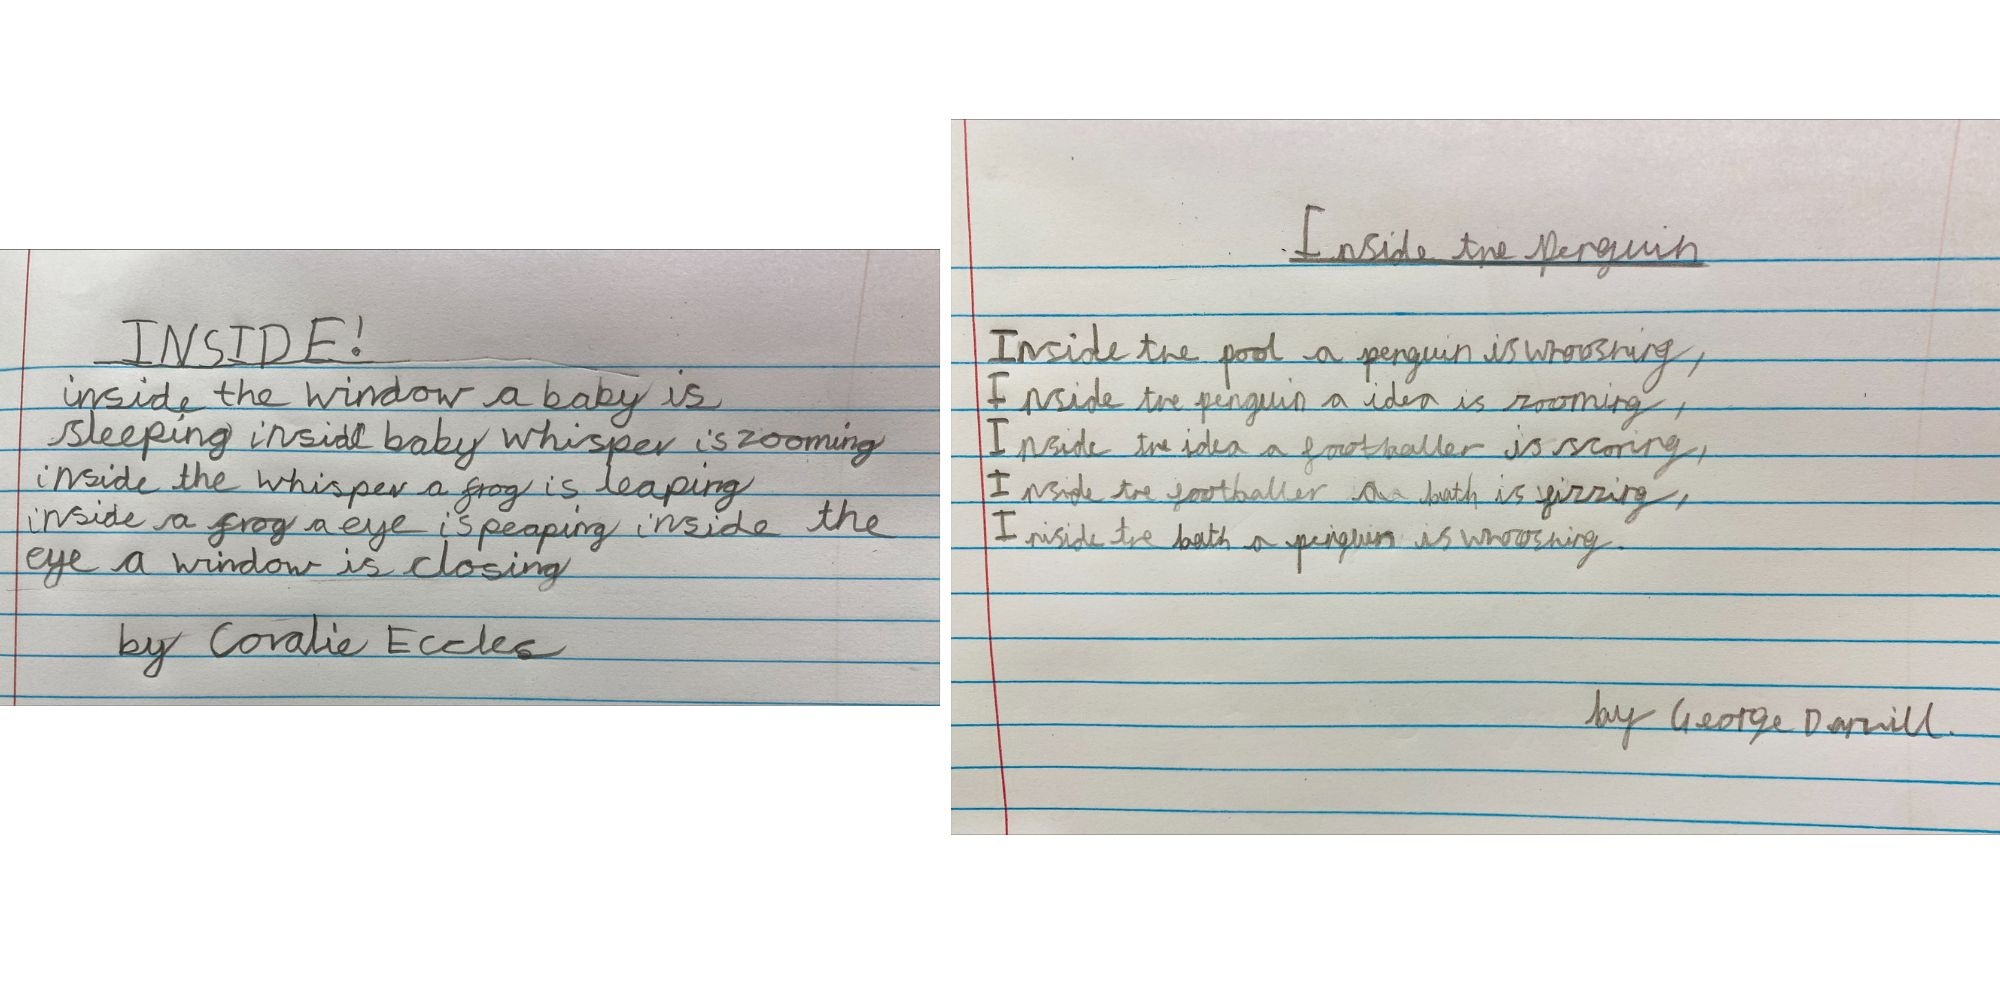 INSIDE!
inside the window a baby is
sleeping inside baby whisper is zooming
inside the whisper a frog is leaping
inside a frog a eye is peaping inside the
eye a window is closing
by Coralie Eccles
Inside the Penguin
Inside the pool a penguin is whooshing,
Inside the penguin a idea is zooming,
Inside the idea a footballer is scoring,
Inside the footballer a bath is fizzing,
Iniside the bath a penguin is whooshing.
by George